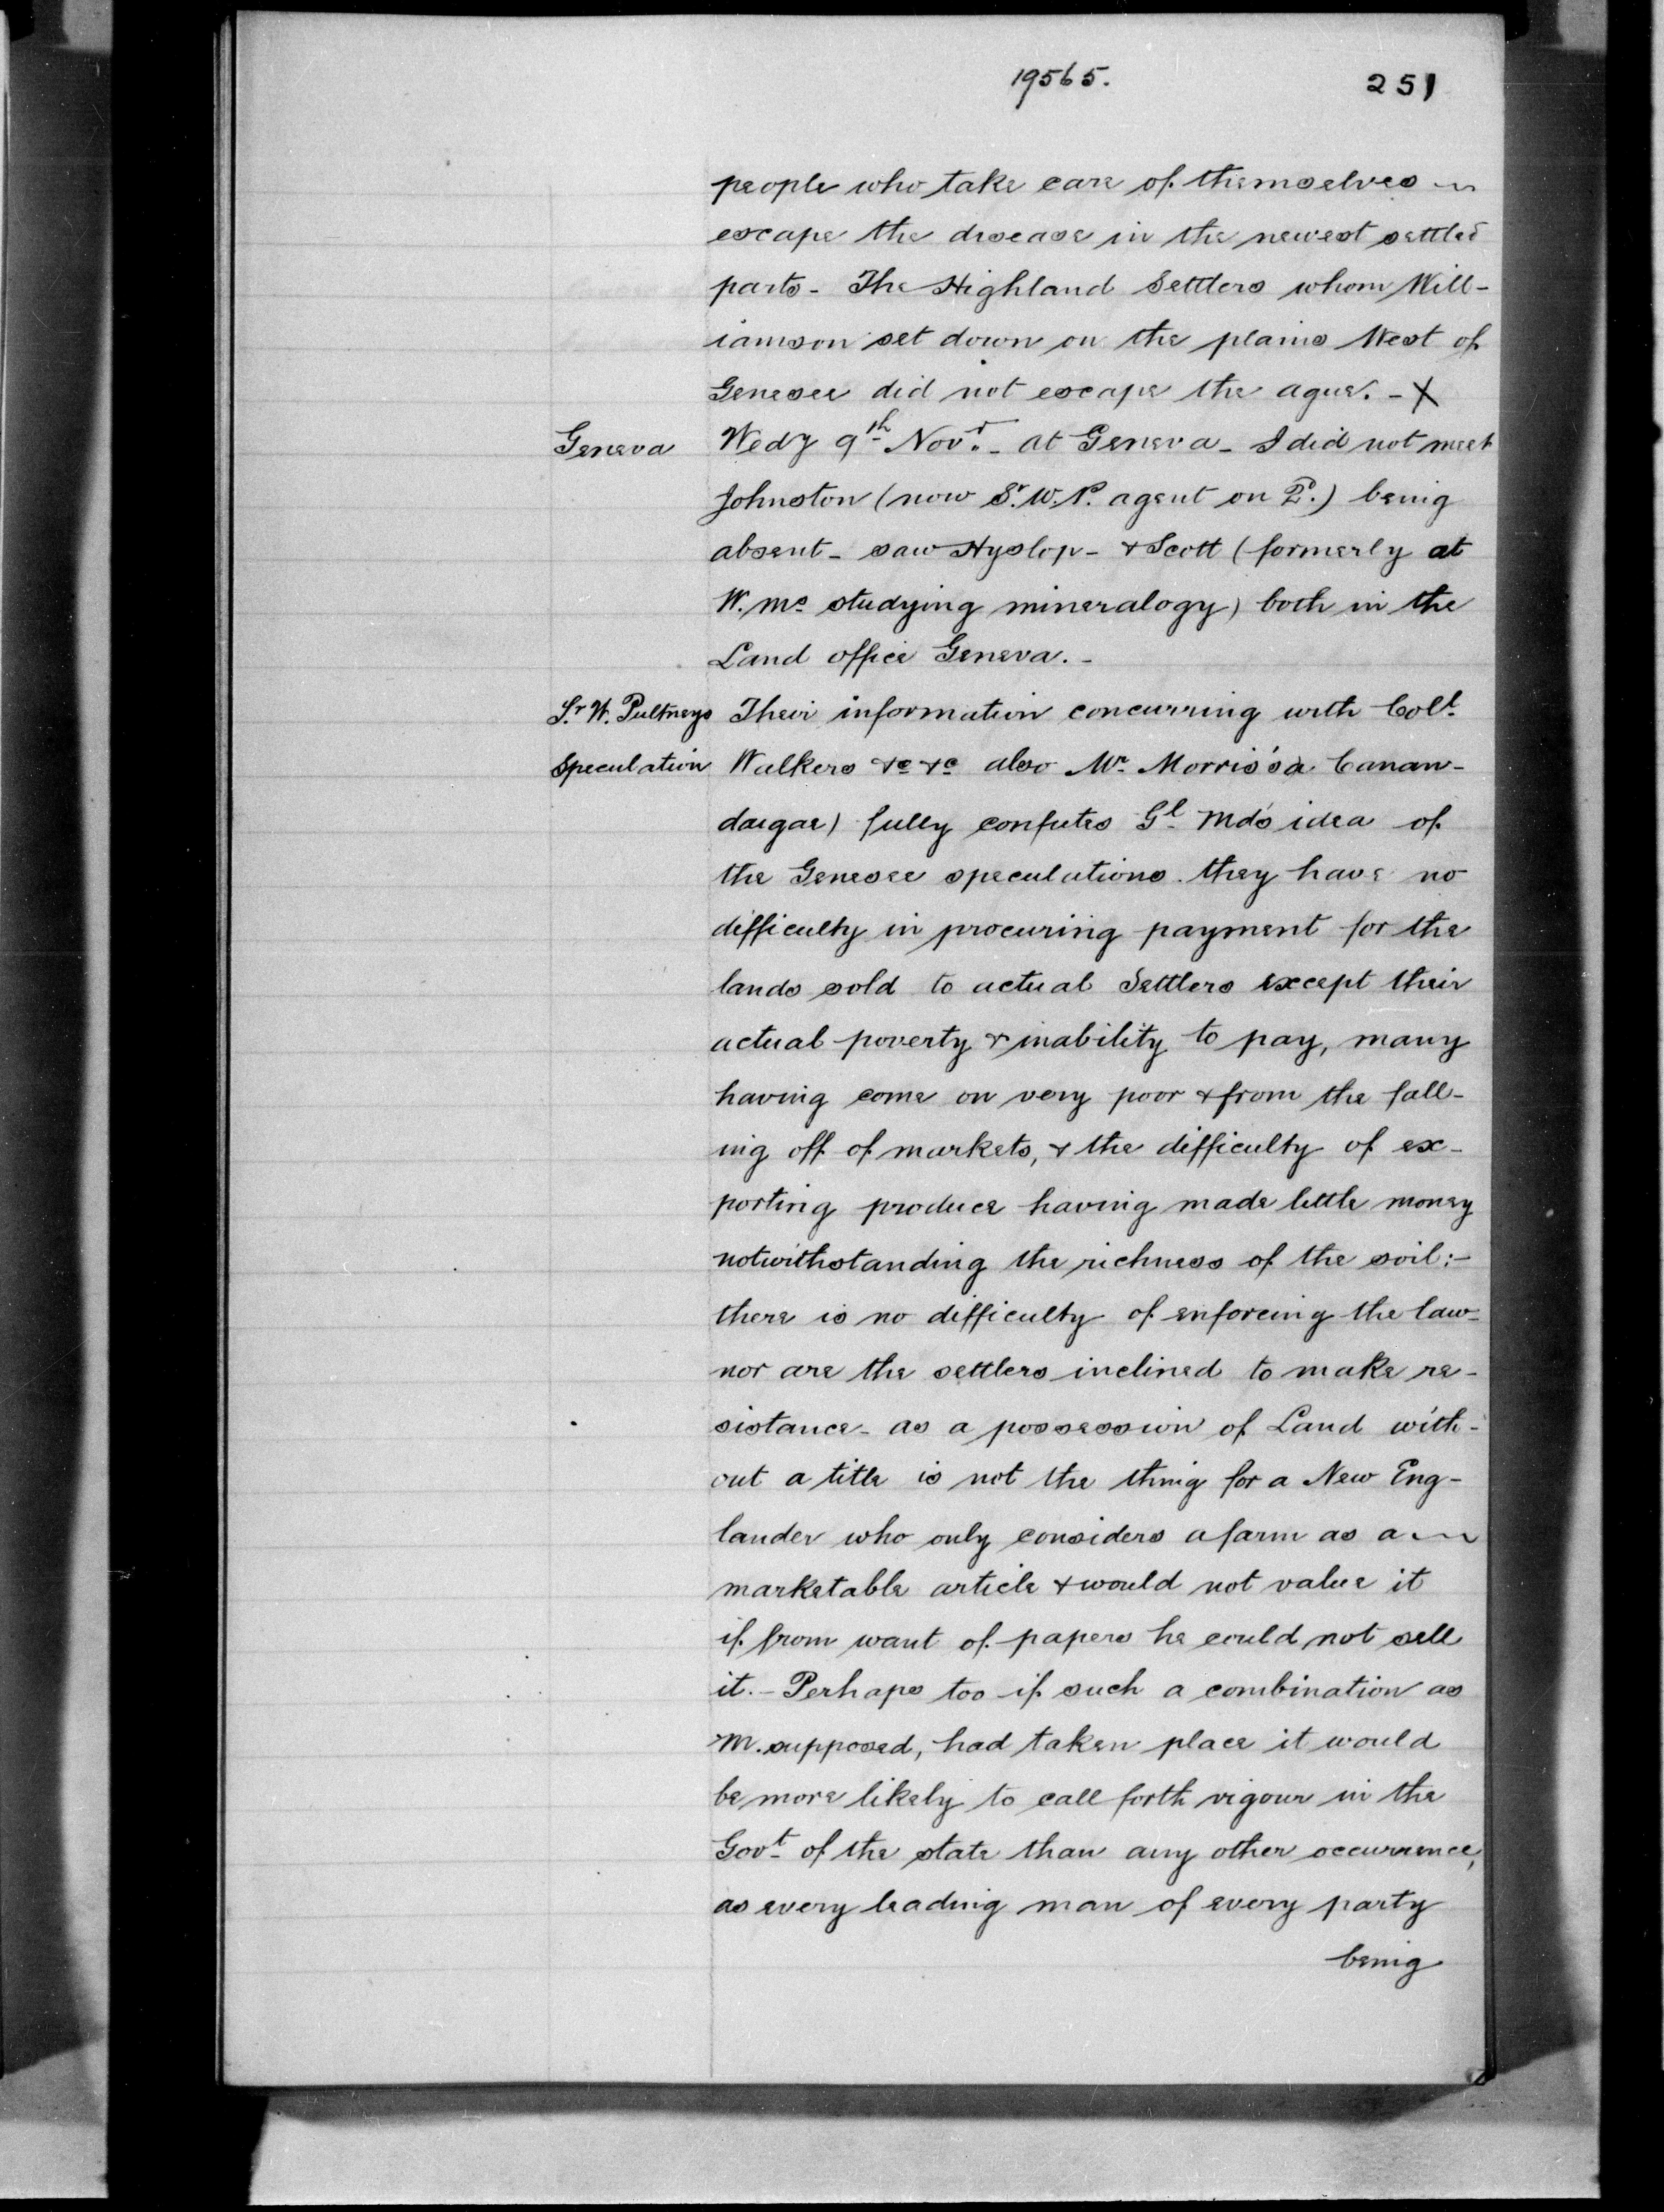 19565.
251
people who take care of themselves
escape the disease in the newest settled
parts - The Highland Settlers whom Will-
iamson set down on the plains West of
Genesee did not escape the ague. - X
Geneva
Wedy 9th Novr. - at Geneva - I did not meet
Johnston (now Sr. W. P. agent on ) being
absent - saw Hyslop - & Scott (formerly at
W. Mcs studying mineralogy) both in the
Land office Geneva. -
Sr. W. Pultneys
Speculation
Their information concurring with Coll.
Walkers &c &c also Mr. Morris's a Canan-
daigae) fully confutes Gl. Mds idea of
the Genesee speculations. they have no
difficulty in procuring payment for the
lands sold to actual Settlers except their
actual poverty & inability to pay, many
having come on very poor & from the fall-
ing off of markets, & the difficulty of ex-
porting produce having made little money
notwithstanding the richness of the soil: -
there is no difficulty of enforcing the law -
nor are the settlers inclined to make re-
sistance - as a possession of Land with-
out a title is not the thing for a New Eng-
lander who only considers a farm as a
marketable article & would not value it
if from want of papers he could not sell
it. - Perhaps too if such a combination as
M. supposed, had taken place it would
be more likely to call forth vigour in the
Govt. of the state than any other occurrence,
as every leading man of every party
being